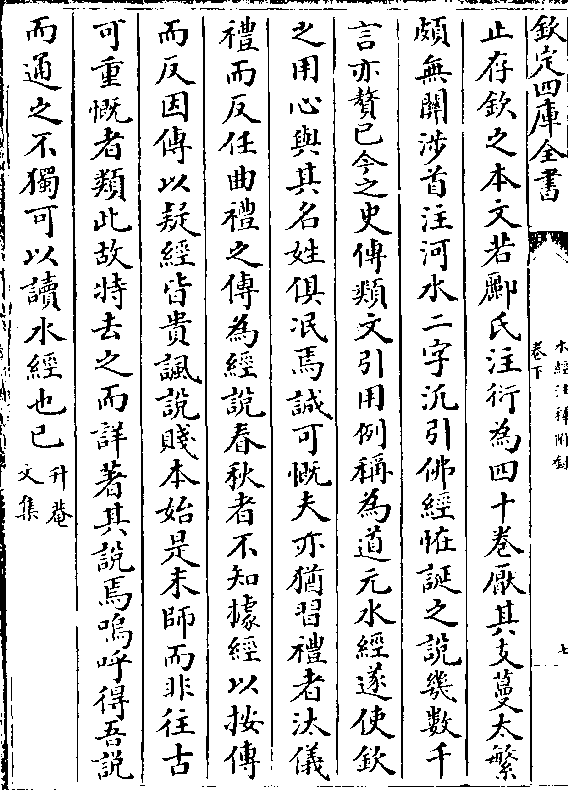 欽定四庫全書
水經注釋附錄
卷下
七
止存欽之本文若酈氏注衍為四十卷厭其支蔓太繁
頗無關涉首注河水二字汎引佛經恠誕之說幾數千
言亦贅已今之史傳類文引用例稱為道元水經遂使欽
之用心與其名姓俱泯焉誠可慨夫亦猶習禮者汰儀
禮而反任曲禮之傳為經說春秋者不知據經以按傳
而反因傳以疑經皆貴諷說賤本始是末師而非往古
可重慨者類此故特去之而詳著其說焉嗚呼得吾説
而通之不獨可以讀水經也已
升菴
文集